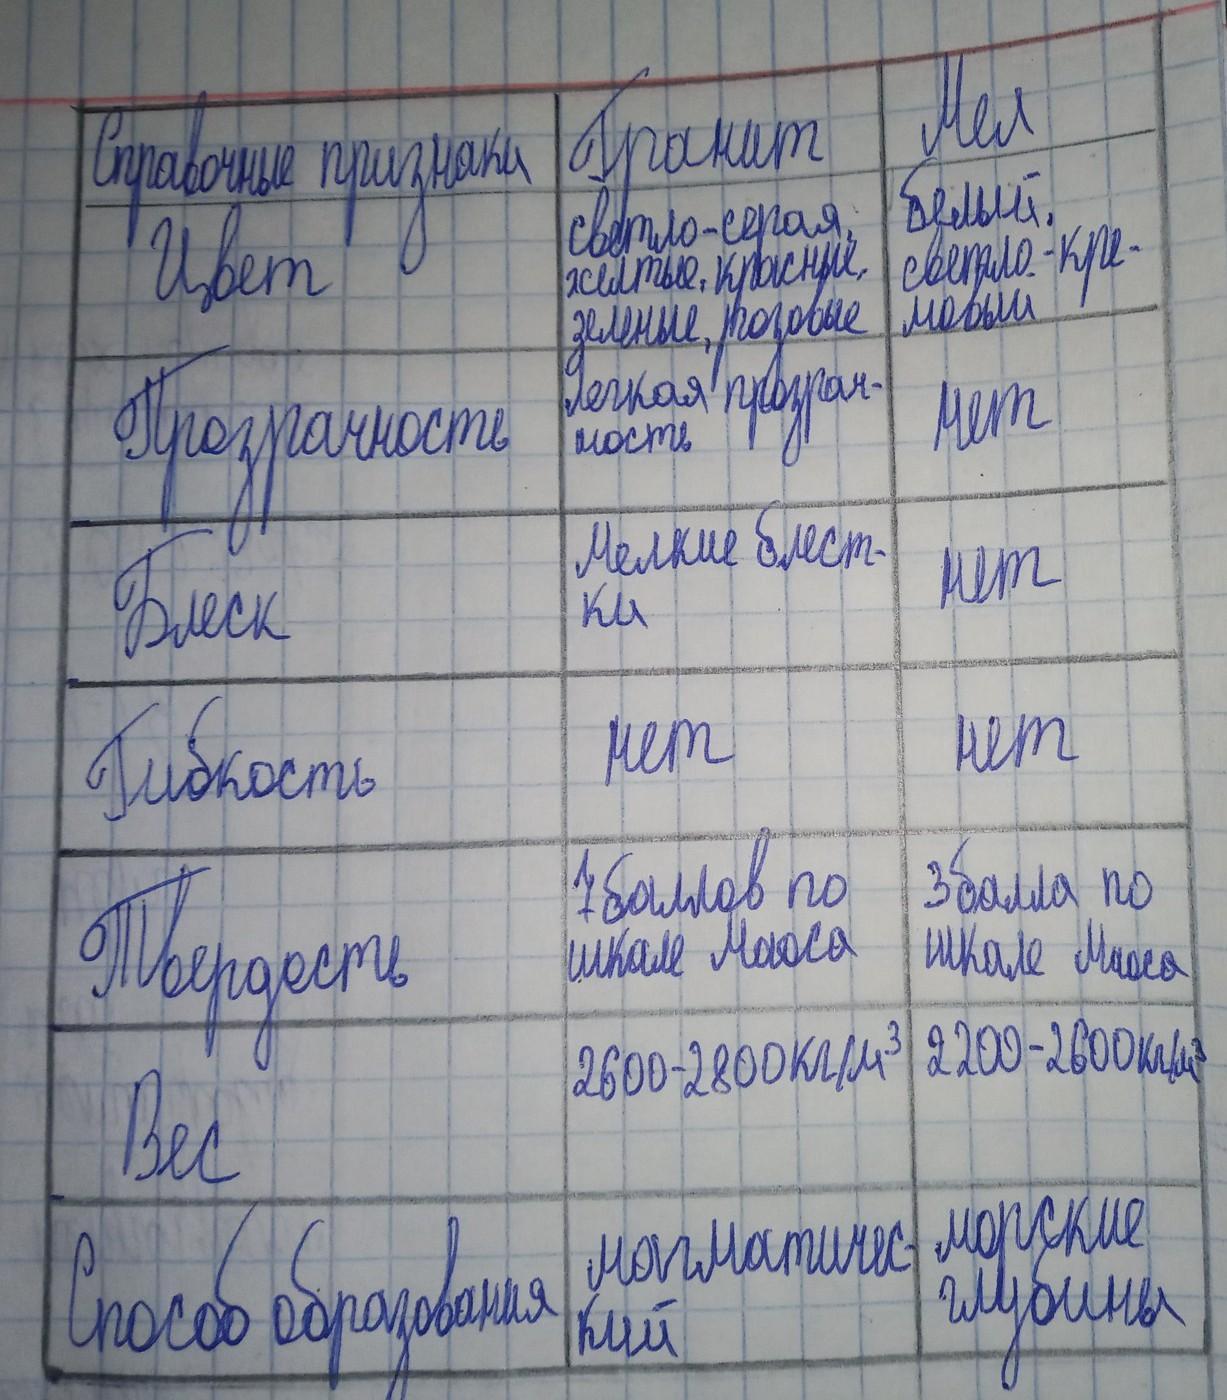 Справочные признаки
Гранит
Мел
Цвет
светло-серая,
желтые, красные,
зеленые, розовые
белый,
светло-кре-
мовый
Прозрачность
легкая прозрач-
ность
нет
Блеск
Мелкие блест-
ки
нет
Гибкость
нет
нет
Твердость
7 баллов по
шкале Мооса
3 балла по
шкале Мооса
Вес
2600-2800кг/м³
2200-2600кг/м³
Способ образования
магматичес-
кий
морские
глубины